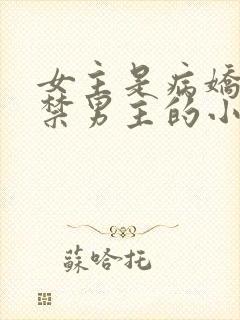 女主是病嬌
禁男主的小
蘇哈托